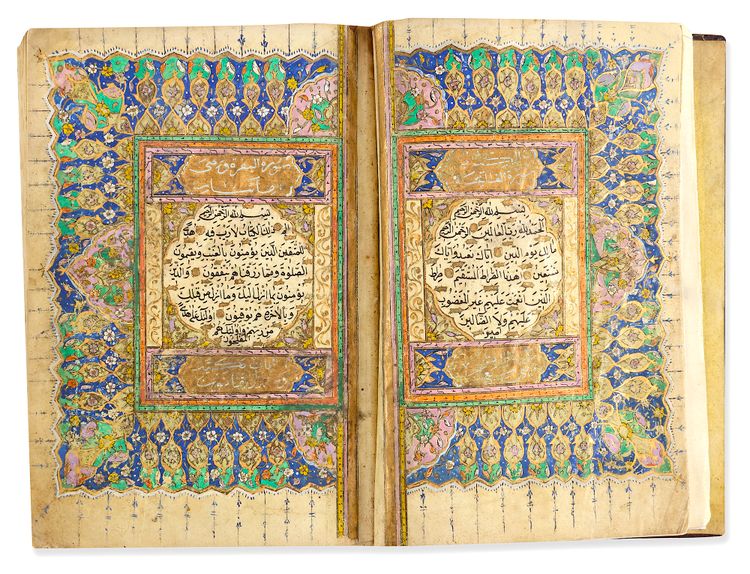 سورة الفاتحة
بسم الله الرحمن الرحيم
الحمد لله رب العالمين الرحمن الرحيم
مالك يوم الدين اياك نعبد واياك
نستعين اهدنا الصراط المستقيم صراط
الذين انعمت عليهم غير المغضوب
عليهم ولا الضالين
امين
سورة البقرة وهي
بسم الله الرحمن الرحيم
الم ذلك الكتاب لا ريب فيه هدى
للمتقين الذين يؤمنون بالغيب ويقيمون
الصلوة ومما رزقناهم ينفقون والذين
يؤمنون بما انزل اليك وما انزل من قبلك
وبالاخرة هم يوقنون اولئك على هدى
من ربهم واولئك هم
المفلحون